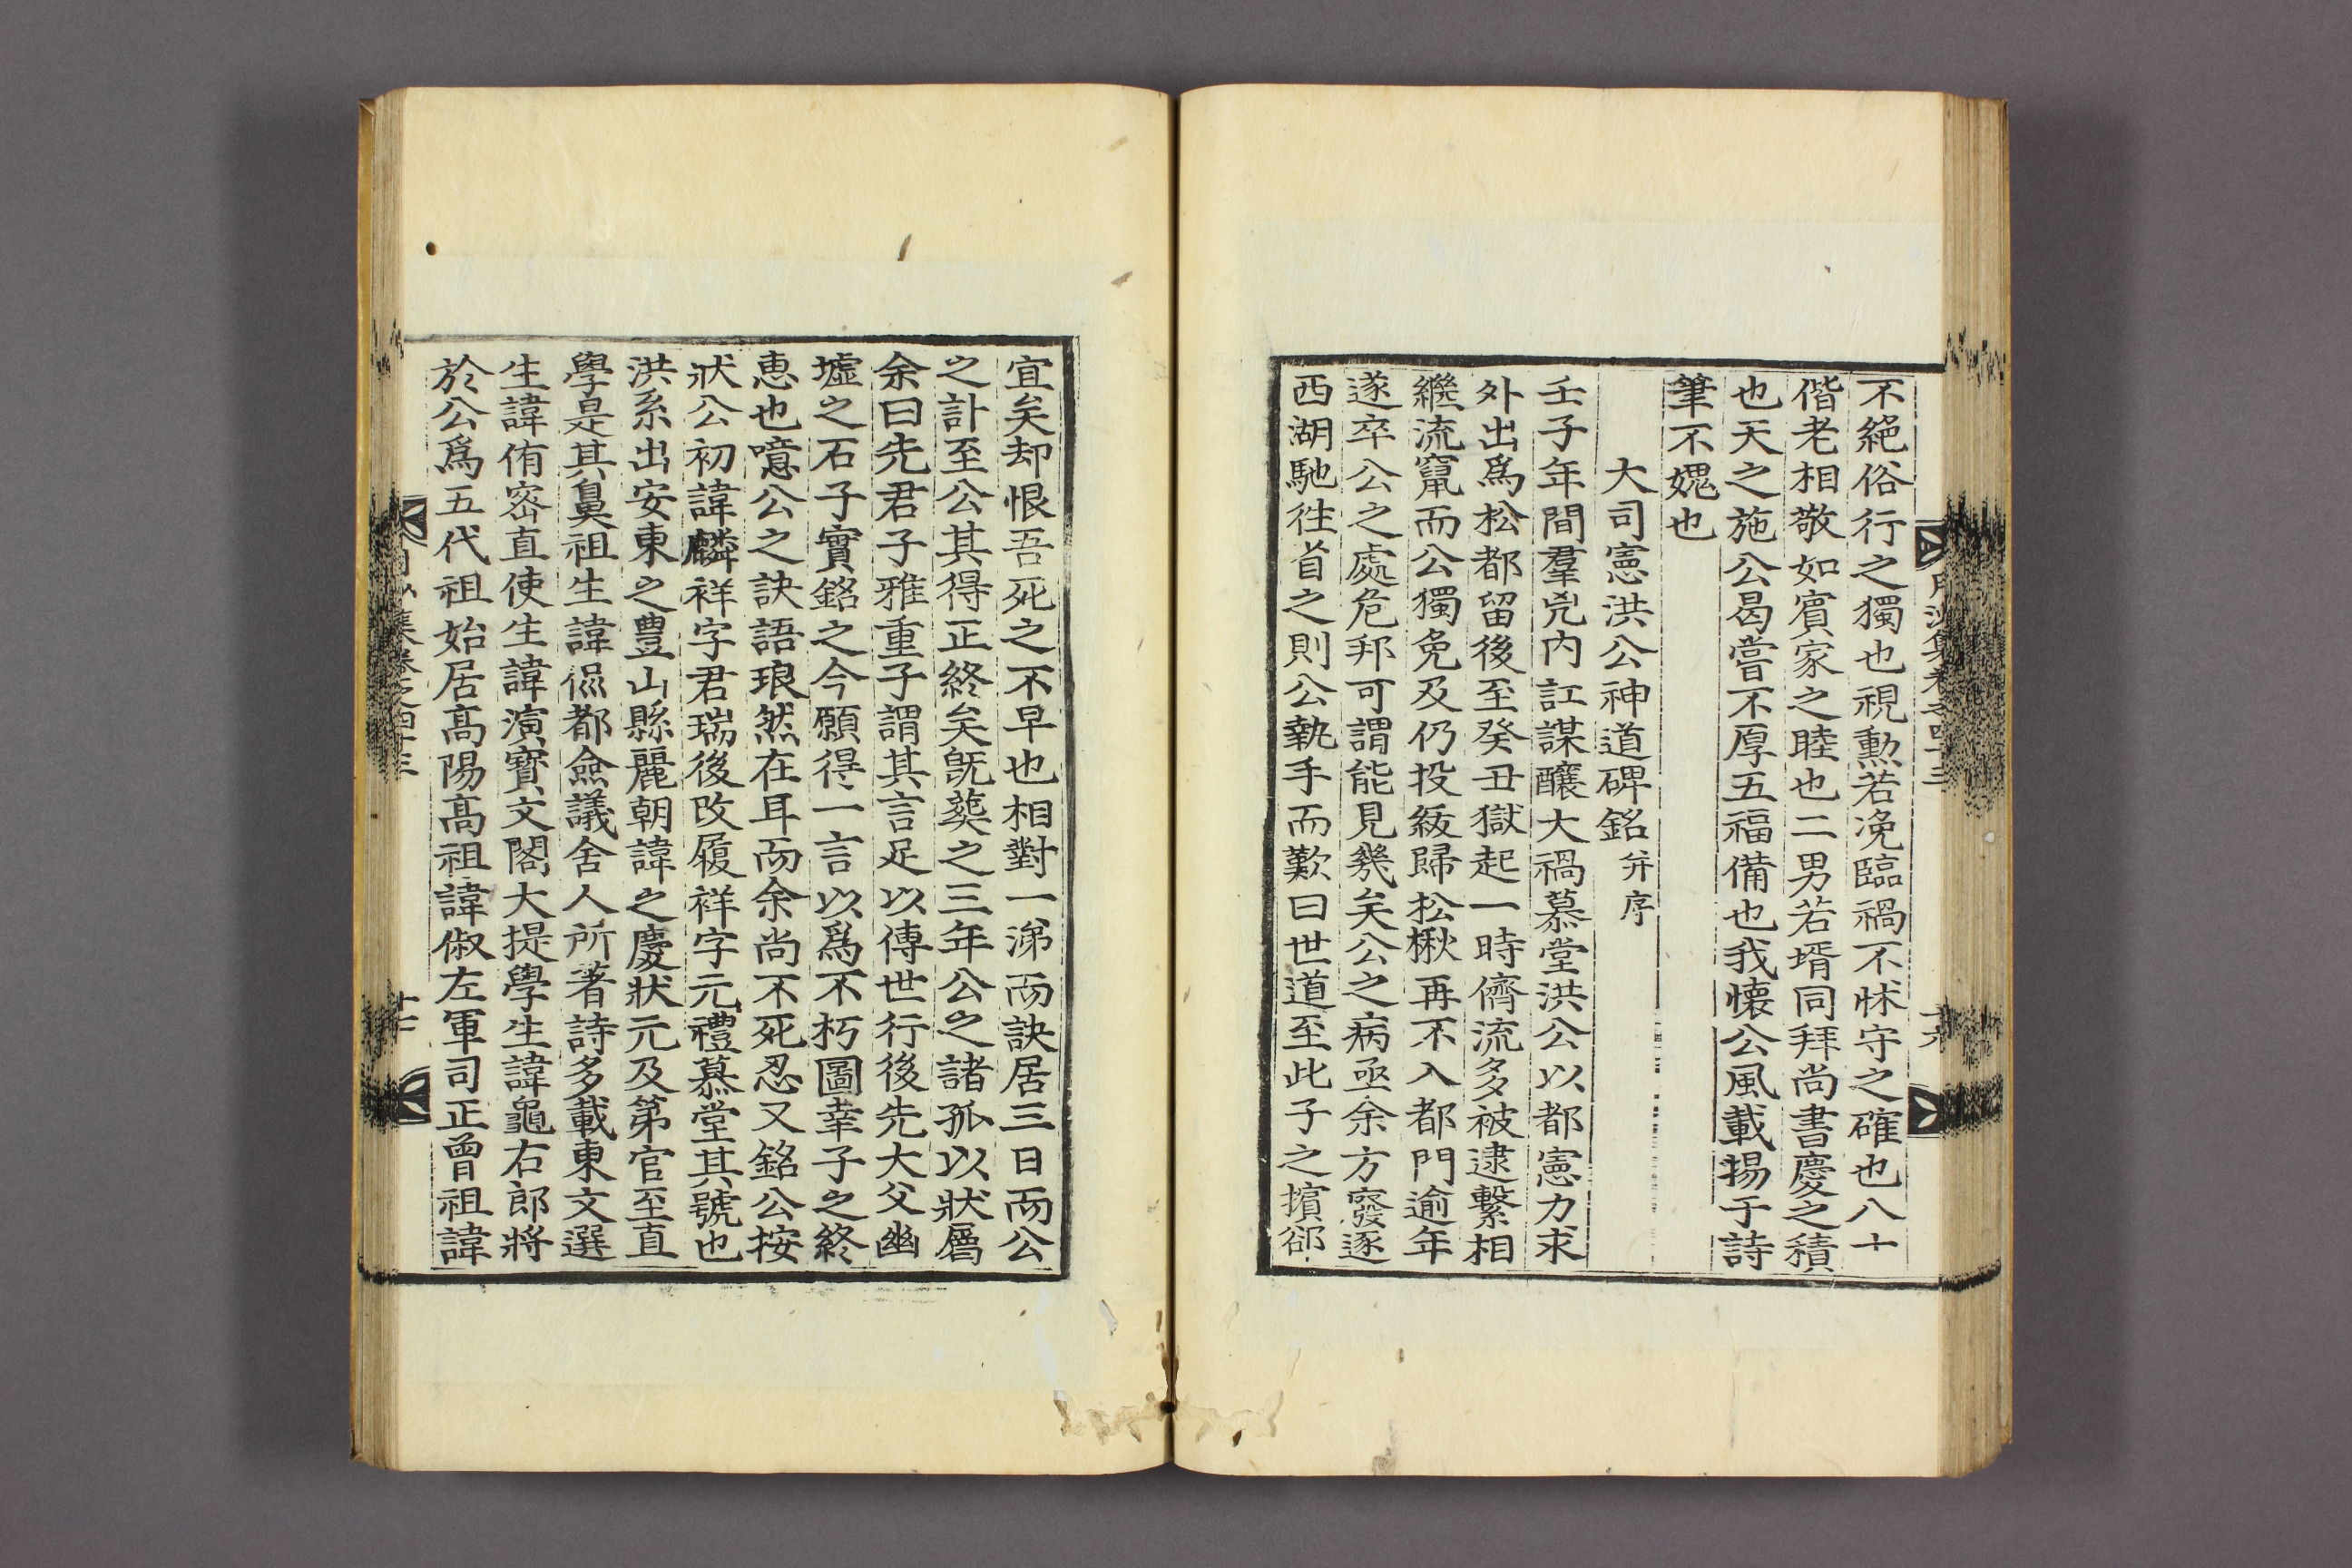 不絕俗行之獨也視勲若凂臨禍不怵守之確也八十
偕老相敬如賓家之睦也二男若壻同拜尚書慶之積
也天之施公曷嘗不厚五福備也我懷公風載揚于詩
筆不媿也
大司憲洪公神道碑銘 并序
壬子年間羣兇內訌謀釀大禍慕堂洪公以都憲力求
外出爲松都留後至癸丑獄起一時儕流多被逮繫相
繼流竄而公獨免及仍投紱歸松楸再不入都門逾年
遂卒公之處危邦可謂能見幾矣公之病亟余方廢逐
西湖馳徃省之則公執手而歎曰世道至此子之擯郤
宜矣却恨吾死之不早也相對一涕而訣居三日而公
之訃至公其得正終矣旣葬之三年公之諸孤以狀屬
余曰先君子雅重子謂其言足以傳世行後先大父幽
墟之石子實銘之今願得一言以爲不朽圖幸子之終
惠也噫公之訣語琅然在耳而余尚不死忍又銘公按
狀公初諱麟祥字君瑞後改履祥字元禮慕堂其號也
洪系出安東之豊山縣麗朝諱之慶狀元及第官至直
學是其鼻祖生諱侃都僉議舍人所著詩多載東文選
生諱侑密直使生諱演寶文閣大提學生諱龜右郎將
於公爲五代祖始居高陽高祖諱俶左軍司正曾祖諱